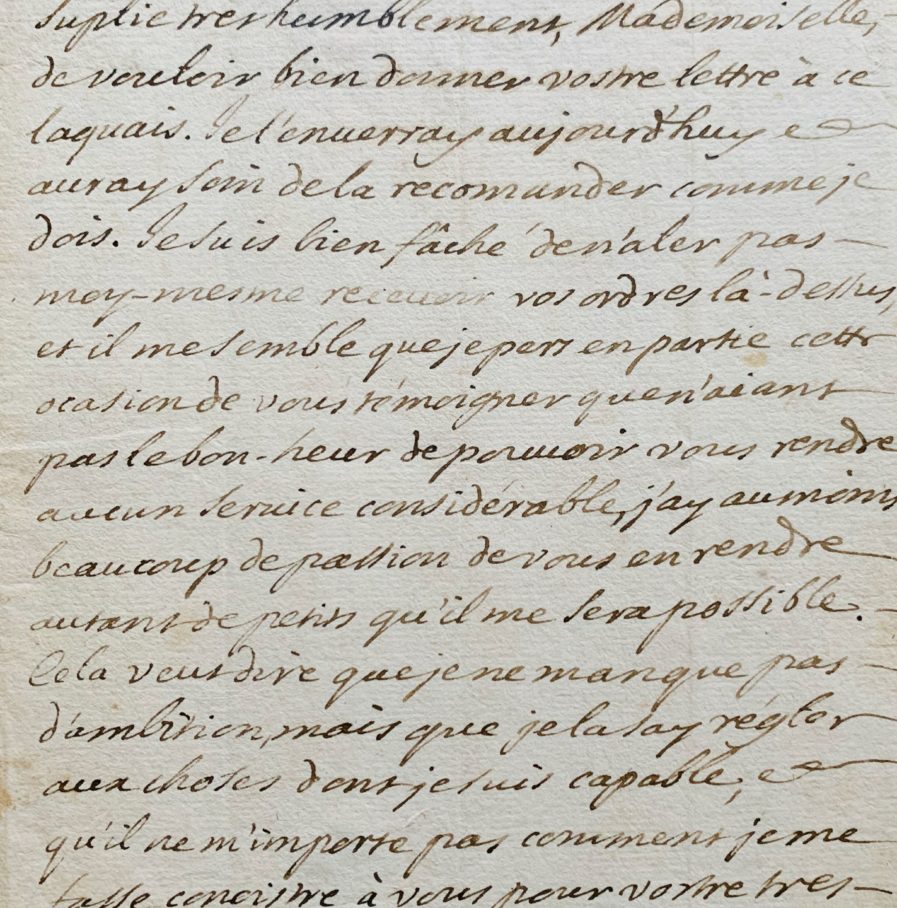 Suplie tres humblement, Mademoiselle,
de vouloir bien donner vostre lettre à ce
laquais. Je l'enverray aujourd'huy et
auray soin de la recomander comme je
dois. Je suis bien fâché de n'aler pas
moy-mesme recevoir vos ordres là-dessus,
et il me semble que je pers en partie cette
ocasion de vous témoigner que n'aiant
pas le bon-heur de pouvoir vous rendre
aucun service considérable, j'ay au moins
beaucoup de passion de vous en rendre
autant de petits qu'il me sera possible.
Cela veut dire que je ne manque pas
d'ambition, mais que je la say régler
aux choses dont je suis capable, et
qu'il ne m'importe pas comment je me
fasse conoistre à vous pour vostre tres-